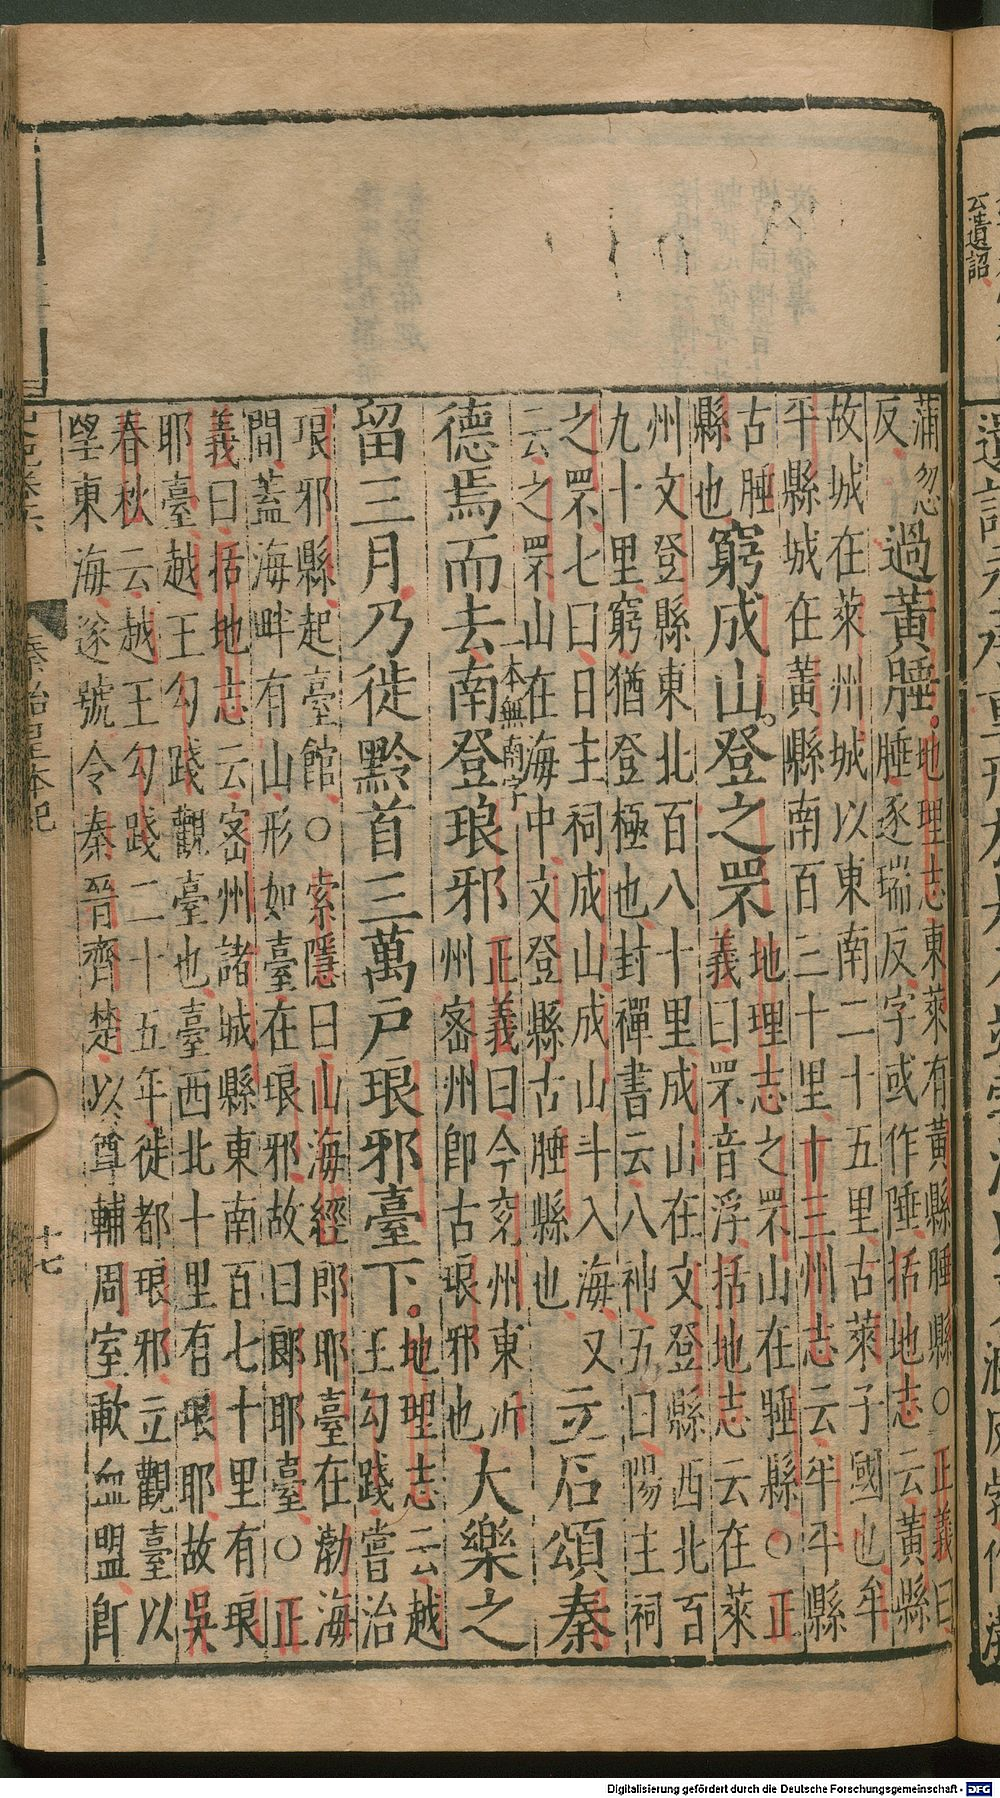 云遺詔
蒲忽反過黃腄地理志東萊有黃縣腄縣○正義曰腄逐瑞反字或作陲括地志云黃縣
故城在萊州城以東南二十五里古萊子國也牟
平縣城在黃縣南百三十里十三州志云牟平縣
古腄縣也窮成山登之罘地理志之罘山在腄縣○正義曰罘音浮括地志云在萊
州文登縣東北百八十里成山在文登縣西北百
九十里窮猶登極也封禪書云八神五曰陽主祠
之罘七曰日主祠成山成山斗入海又云之罘山在海中文登縣古腄縣也立石頌秦
德焉而去南登琅邪正義曰今兗州東沂州密州即古琅邪也大樂之
一本無南字
留三月乃徙黔首三萬戶琅邪臺下地理志云越王勾踐嘗治
琅邪縣起臺館○索隱曰山海經郎耶臺在渤海
間蓋海畔有山形如臺在琅邪故曰郎耶臺○正
義曰括地志云密州諸城縣東南百七十里有琅
耶臺越王勾踐觀臺也臺西北十里有琅耶故吳
春秋云越王勾踐二十五年徙都琅邪立觀臺以
望東海遂號令秦晉齊楚以尊輔周室歃血盟即
史記卷六
秦始皇本紀
十七
Digitalisierung gefördert durch die Deutsche Forschungsgemeinschaft - DFG